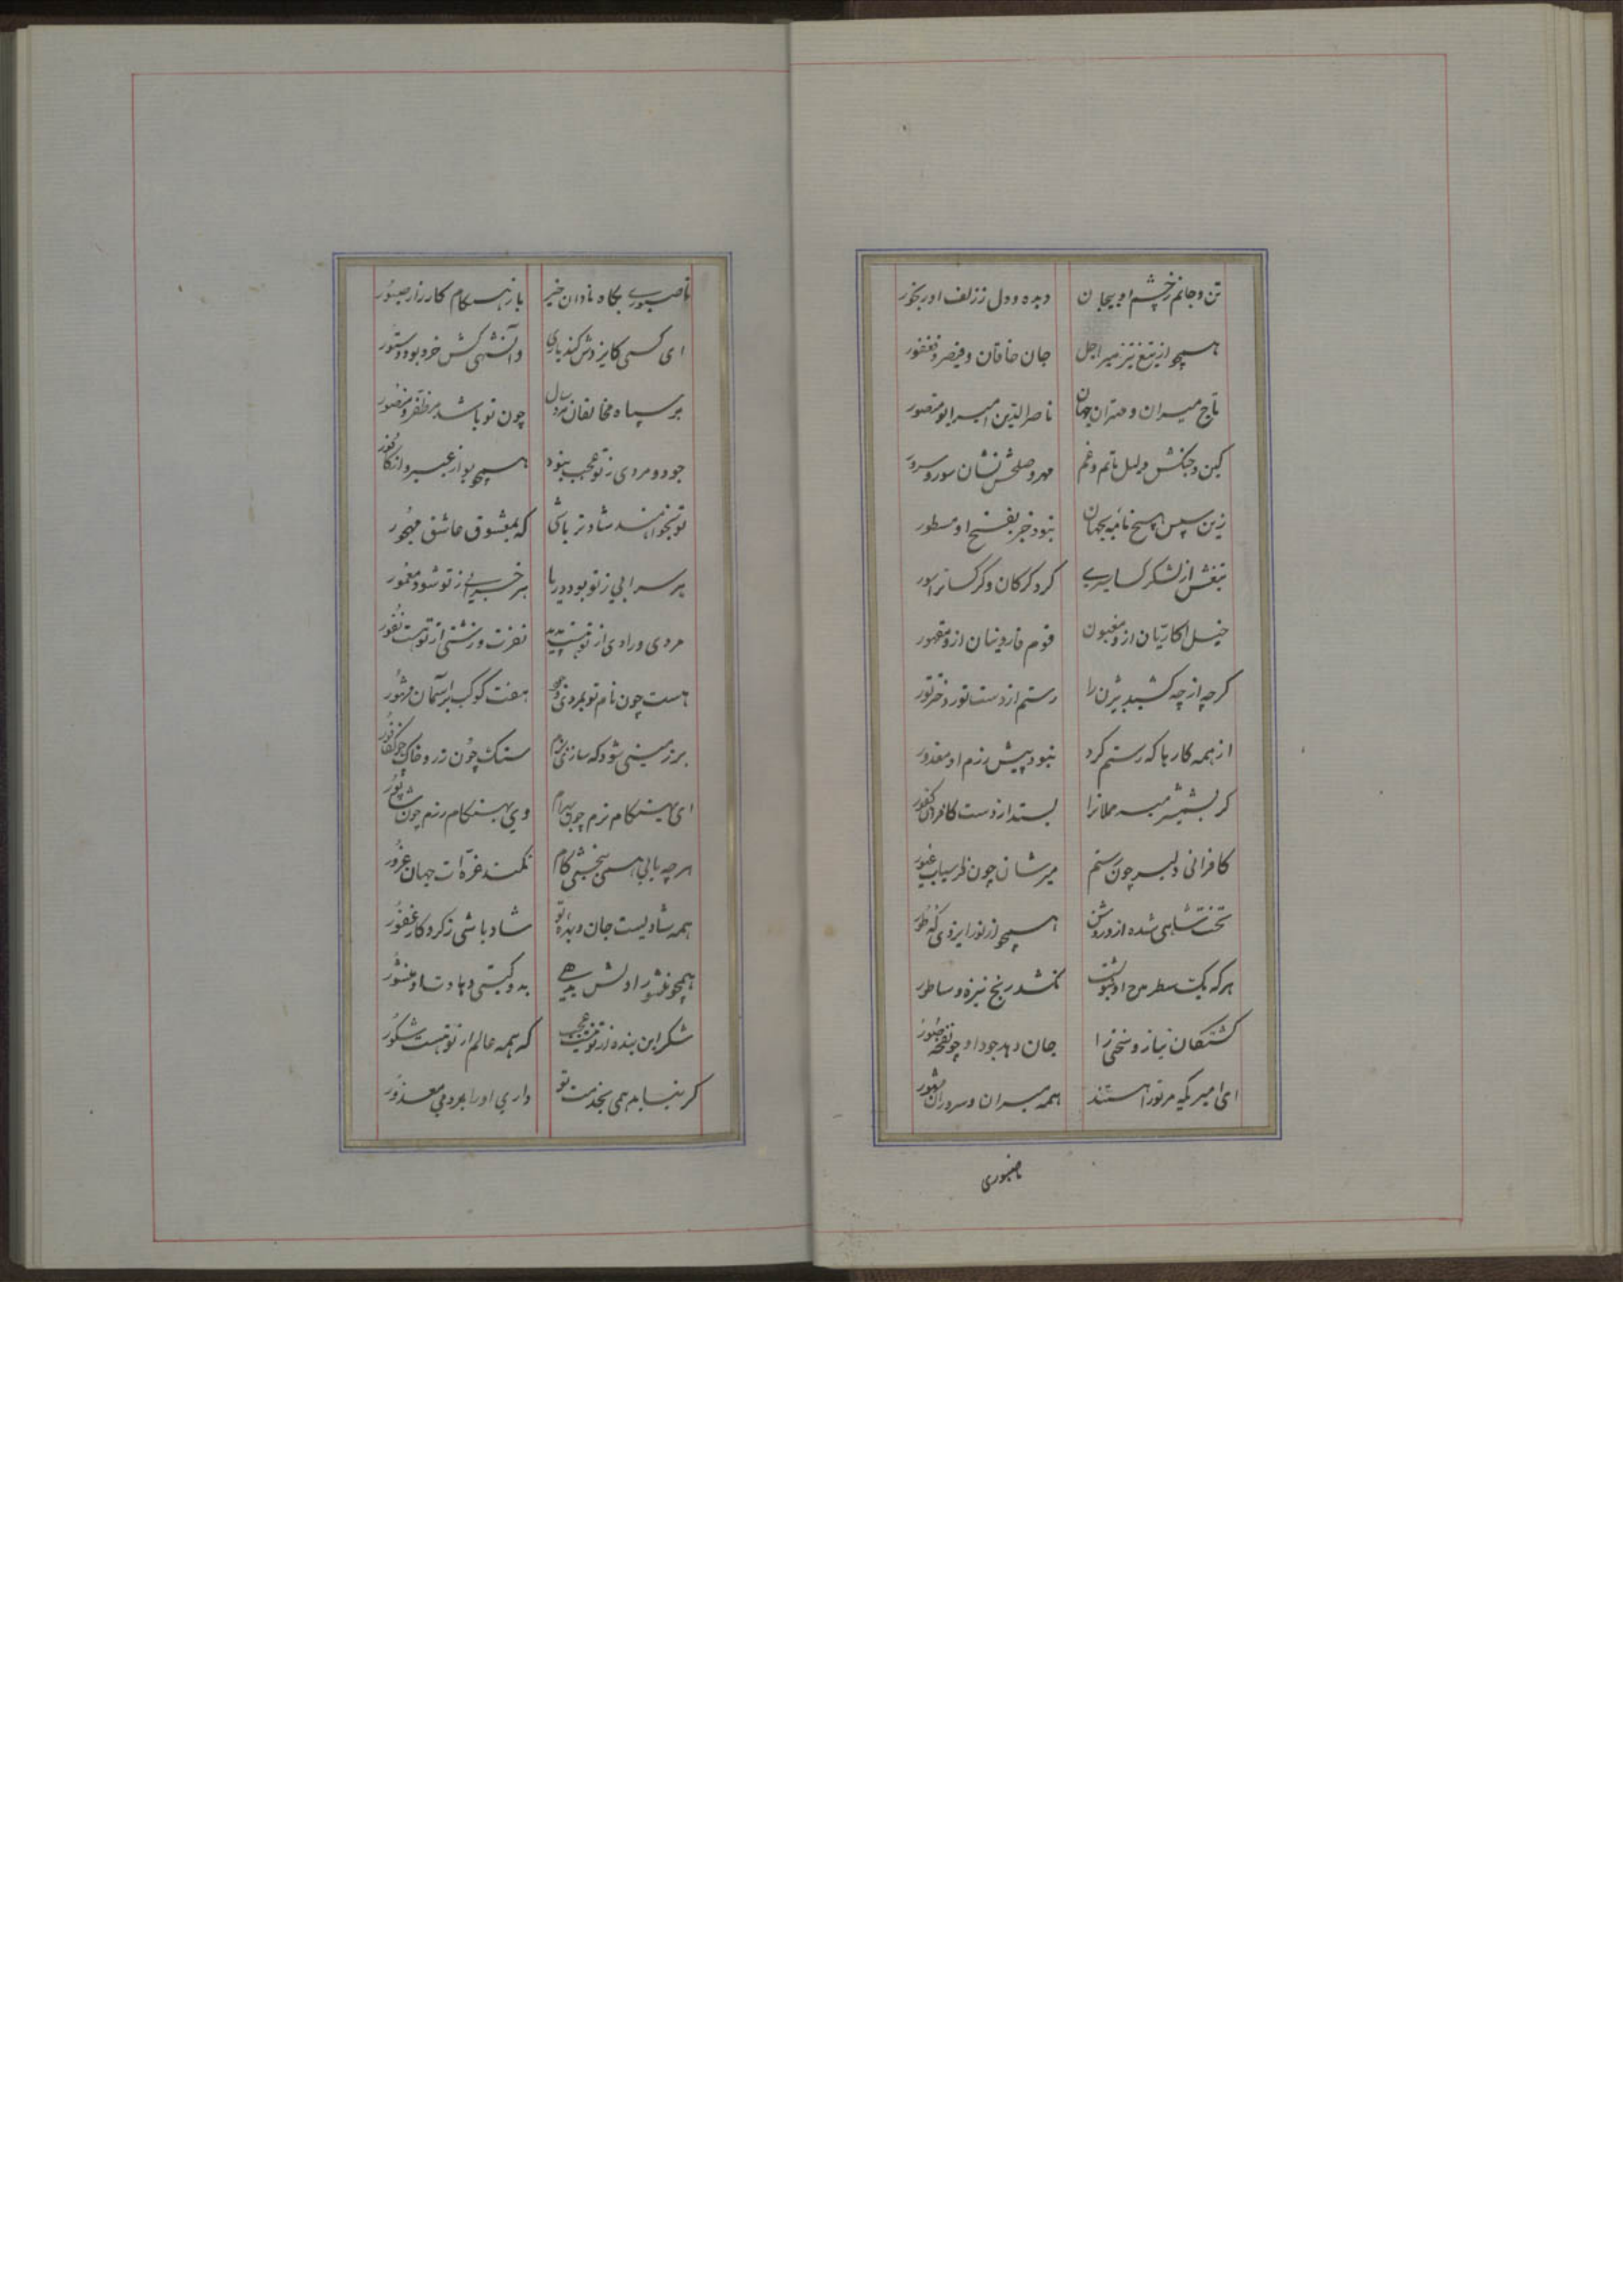 تن و جانم ز چشم او بیجان دیده و دل ز زلف او رنجور
همچو از تیغ تیز میر اجل جان خاقان و قیصر و فغفور
تاج میران و مهتران جهان ناصرالدین امیر ابو منصور
کین و جنگش دلیل ماتم و غم مهر و صلحش نشان سور و سرور
زین سپس هیچ نامه بجهان نبود جز بفتح او مسطور
تیغش از لشکر کسان
خیل از و مغبون قوم از و مقهور
کرچه از چه کشید بیژن را رستم از دست تور و دختر تور
از همه کارها که رستم کرد نبود پیش رزم او مقدور
کر بشمشیر بستد از دست کافران کفور
کافرانی دلیر چون رستم میرشان چون فرسیاب غیور
تخت شاهی شده ازو روشن همچو از نور ایزدی که طور
هرکه یک سطر مدح او نکشد رنج نیزه و ساطور
کشتکان نیاز و سختی را جان دهد جود او چو نفخه صور
ای امیریکه مر تو را هستند همه میران و سروران
صبوری
ناصبوری بکاه دادن خیر باز هنکام کارزار صبور
ای کسی کایزدش کند یاری و آنشهی کش خرد بود دستور
بر سپاه مخالفان چون تو باشد مظفر و منصور
جود و مردی ز تو عجب نبود همچو بو از عبیر و از کافور
تو بخواهنده شادتر باشی که بمعشوق عاشق مهجور
هر سرابی ز تو بود دریا هر خرابی از تو شود معمور
مردی و رادی از تو نیست نفرت و زشتی از تو هست نفور
هست چون نام تو بمردی هفت کوکب بر آسمان مشهور
بر زمینی شود که سازی بزم سنک چون زر و خاک چو کافور
ای بهنکام بزم چون بهرام وی بهنکام رزم چون شاپور
هرچه یابی همی ببخشی نکند غره ات جهان غرور
همه شادیست جان و دیده تو شاد باشی ز کردکار غفور
همچو منشور دلش بدو کیتی دهادت او منشور
شکر این بنده از تو نیست عجب که همه عالم از تو هست شکور
کر نیاید همی بخدمت تو داری او را بمردمی معذور